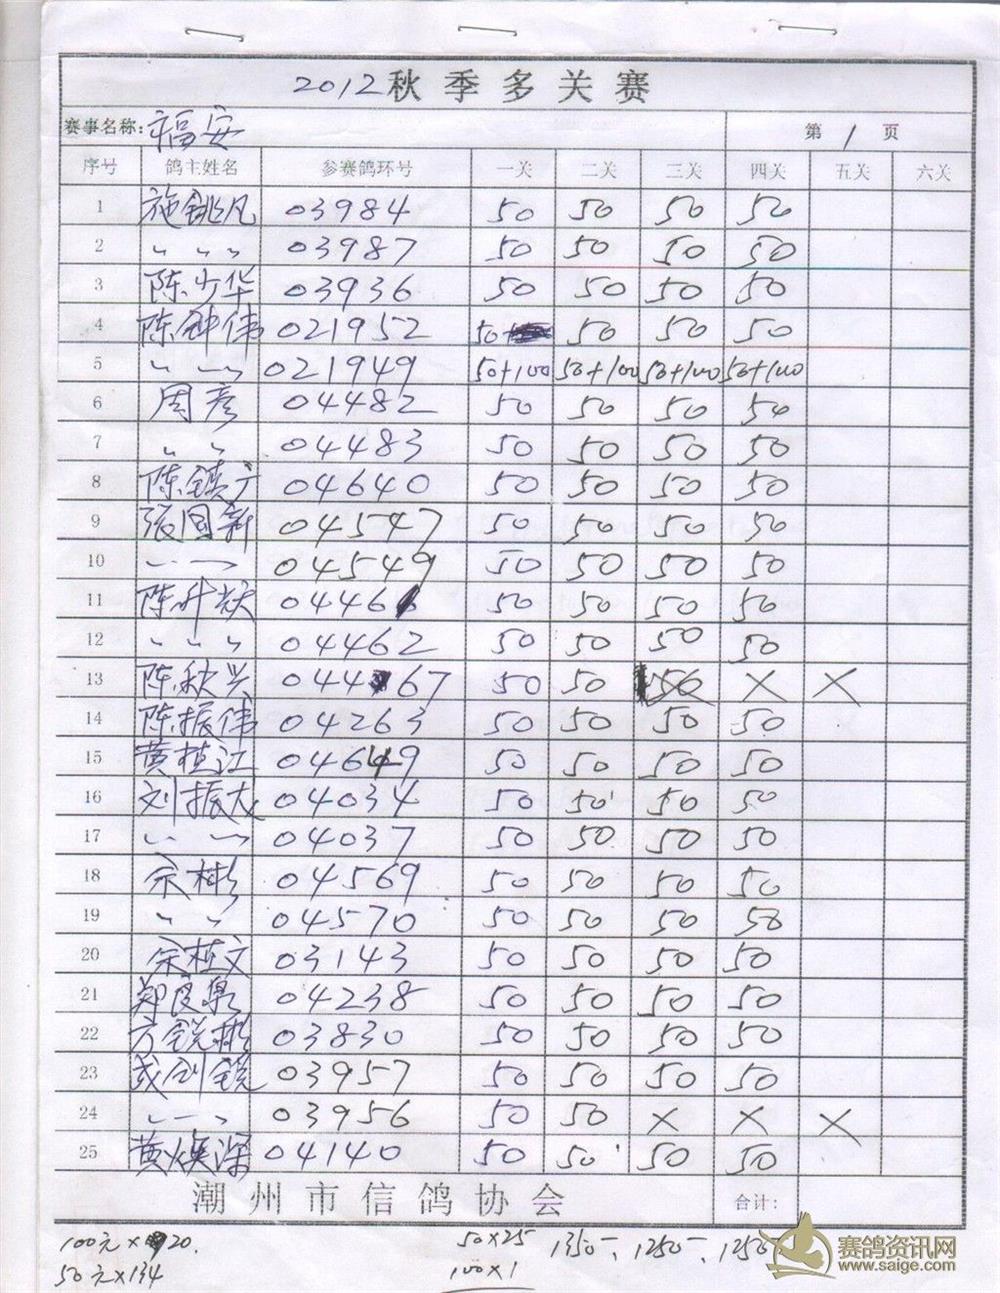 2012秋季多关赛
赛事名称: 福安 第 1 页
序号 鸽主姓名 参赛鸽环号 一关 二关 三关 四关 五关 六关
1 施 凡 03984 50 50 50 50
2 〃 〃 〃 03987 50 50 50 50
3 陈少华 03936 50 50 50 50
4 陈钟伟 021952 50 50 50 50
5 〃 〃 〃 021949 50+100 50+100 50+100 50+100
6 周彦 04482 50 50 50 50
7 〃 〃 04483 50 50 50 50
8 陈镇广 04640 50 50 50 50
9 張国新 04547 50 50 50 50
10 〃 〃 04549 50 50 50 50
11 陈 0446 50 50 50 50
12 〃 〃 〃 04462 50 50 50 50
13 陈秋兴 044 67 50 50 50 × ×
14 陈振伟 04263 50 50 50 50
15 黄植江 04649 50 50 50 50
16 刘振大 04034 50 50 50 50
17 〃 〃 04037 50 50 50 50
18 宋彬 04569 50 50 50 50
19 〃 〃 04570 50 50 50 50
20 宋植文 03143 50 50 50 50
21 郑 04238 50 50 50 50
22 方锐彬 03830 50 50 50 50
23 创锐 03957 50 50 50 50
24 〃 〃 03956 50 50 × × ×
25 黄焕深 04140 50 50 50 50
潮州市信鸽协会 合计:
100元×20. 50×25 1350、1250、1250
50元×134 100×1
赛鸽资讯网
www.saige.com